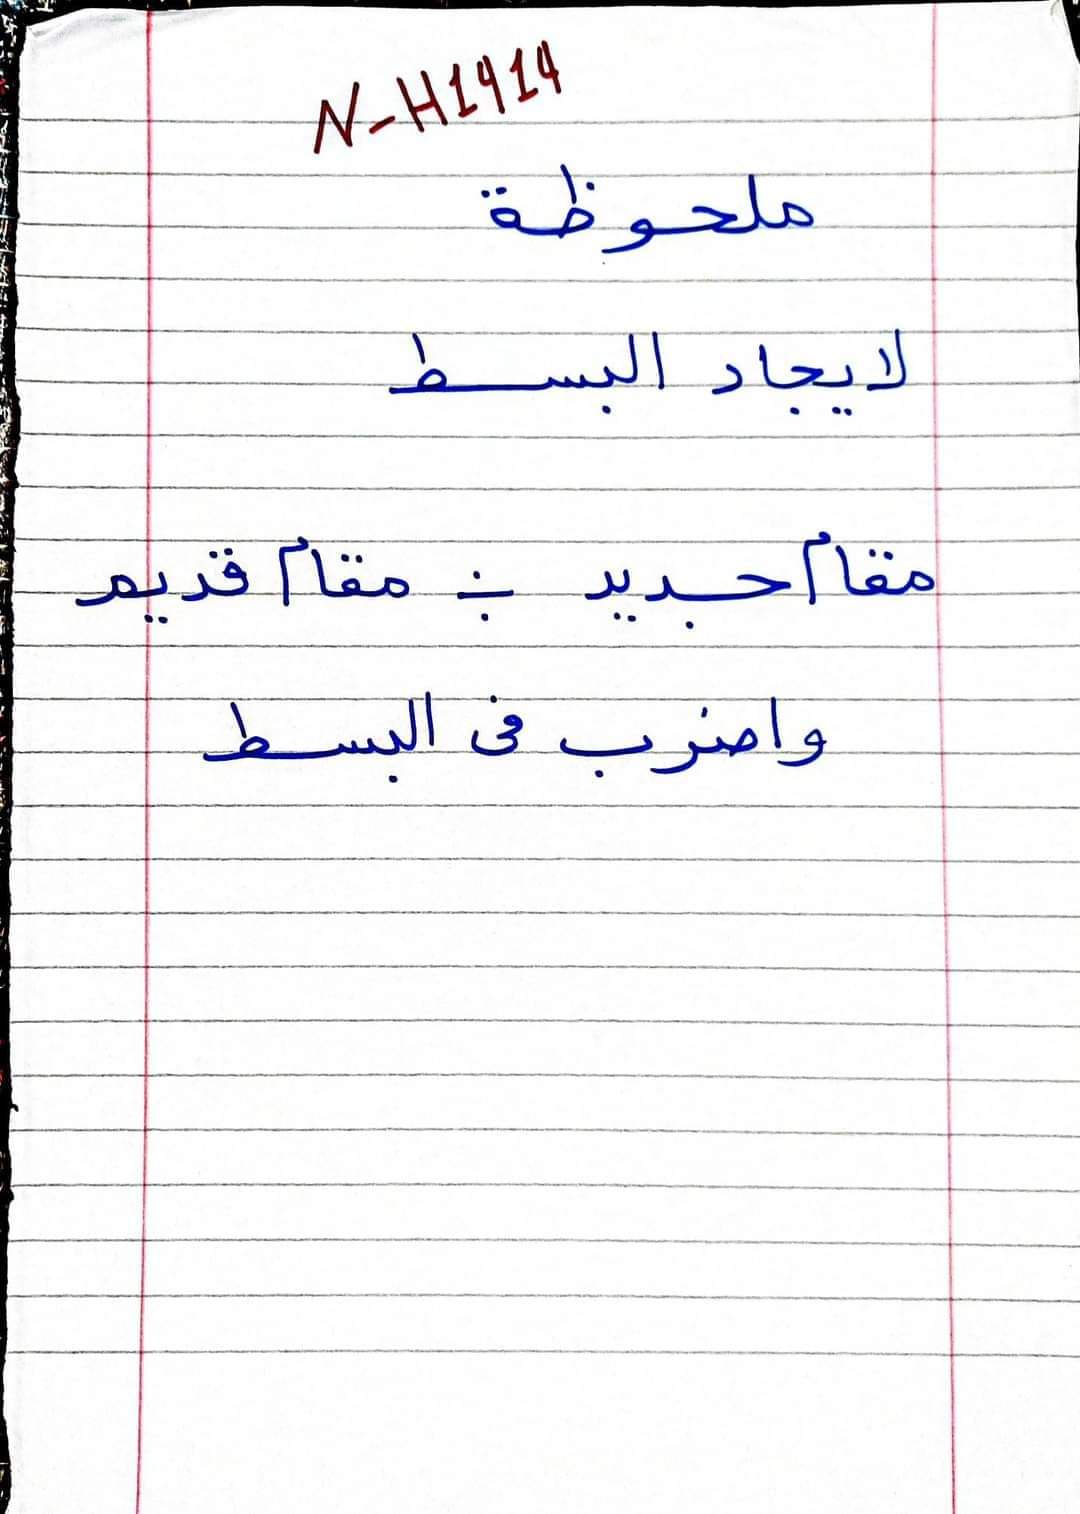 N-H1414
ملحوظة
لايجاد البسط
مقام جديد ÷ مقام قديم
واضرب فى البسط